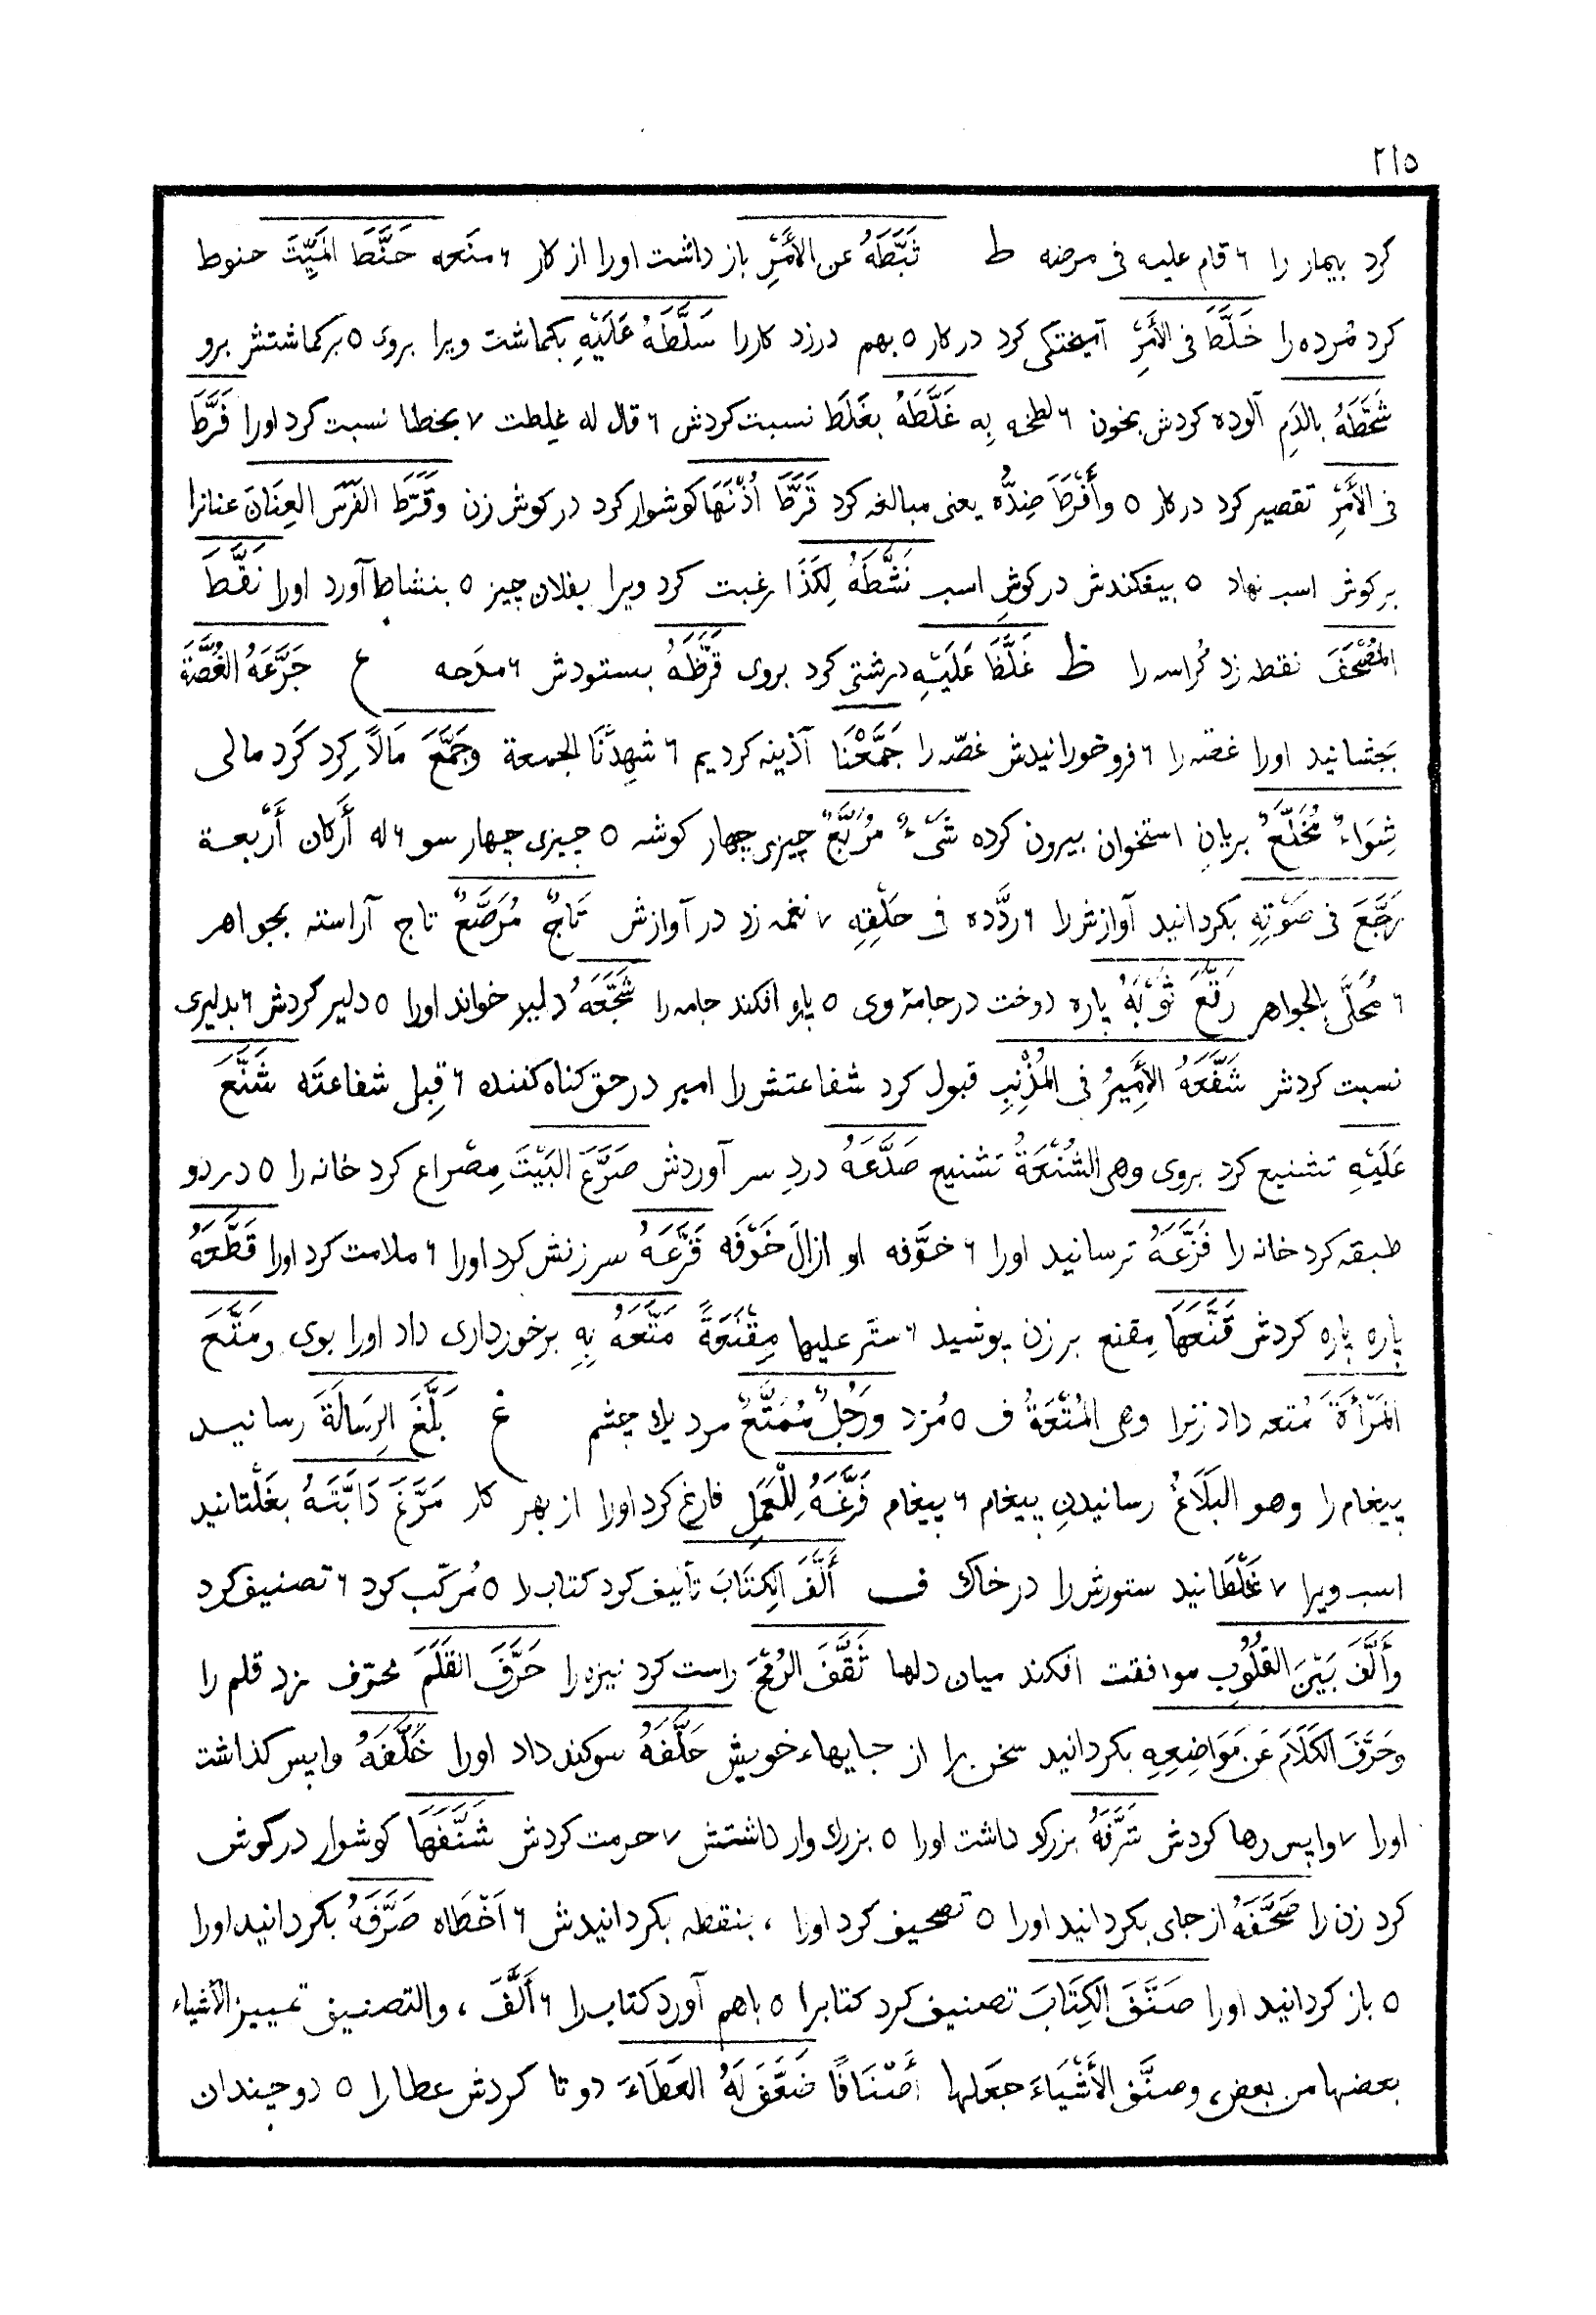 ٢١٥
كرد بيمار را ٦ قام عليه فى مرضه ط ثَبَّطَهُ عن الأَمْرِ باز داشت اورا از كار ٦ منَعه حَنَّطَ المَيِّتَ حنوط
كرد مُرده را خَلَّطَ فى الأَمْرِ آميختكى كرد در كار ٥ بهم درزد كاررا سَلَّطَهُ عَلَيْهِ بكماشت ويرا بروى ٥ بركماشتش برو
شَحَّطَهُ بالدَمِ آلوده كردش بخون ٦ لطخه بِه غَلَّطَهُ بغَلَط نسبت كردش ٦ قال له غلِطت ٧ بخطا نسبت كرد اورا فَرَّطَ
فى الأَمْرِ تقصير كرد در كار ٥ وأَفْرَطَ ضِدُّه يعنى مبالغه كرد قَرَّطَ اُذْنَهَا كوشوار كرد در كوش زن وقَرَّطَ الفَرَسَ العِنَانَ عنانرا
بر كوش اسب نهاد ٥ بيفكندش در كوشِ اسب نَشَّطَهُ لِكَذَا رغبت كرد ويرا بفلان چيز ٥ بنشاط آورد اورا نَقَّطَ
المُصْحَفَ نقطه زد كُراسه را ظ غَلَّظَ عَلَيْهِ درشتى كرد بروى قَرَّظَهُ بستودش ٦ مدَحه ع جَرَّعَهُ الغُصَّةَ
بَچشانيد اورا غصّه را ٦ فرو خورانيدش غصّه را جَمَّعْنَا آذينه كرديم ٦ شهِدْنَا الجمعة وجَمَّعَ مَالاً كِرد كَرد مالى
شِوَاءٌ مُخَلَّعٌ بريانِ استخوان بيرون كرده شَىْءٌ مُرَبَّعٌ چيزى چهار كوشه ٥ چيزى چهار سو ٦ له أَركان أَرْبعة
رَجَّعَ فى صَوْتِهِ بكردانيد آوازش را ٦ ردَّده فى حَلْقِهِ ٧ نغمه زد در آوازش تَاجٌ مُرَصَّعٌ تاج آراسته بجواهر
٦ مُحلَّى بالجواهر رَقَّعَ ثَوْبَهُ پاره دوخت در جامهٔ وى ٥ پاره افكند جامه را شَجَّعَهُ دلير خواند اورا ٥ دلير كردش ٦ بدليرى
نسبت كردش شَفَّعَهُ الأَمِيرُ فى المُذْنِبِ قبول كرد شفاعتش را امير در حق كناه كننده ٦ قبِل شفاعتَه شَنَّعَ
عَلَيْهِ تشنيع كرد بروى وهى الشُنْعَةُ تشنيع صَدَّعَهُ دردِ سر آوردش صَرَّعَ البَيْتَ مِصْراع كرد خانه را ٥ در دو
طبقه كرد خانه را فَزَّعَهُ ترسانيد اورا ٦ خوَّفه او ازالَ خَوْفَه قَرَّعَهُ سرزنش كرد اورا ٦ ملامت كرد اورا قَطَّعَهُ
پاره پاره كردش قَنَّعَهَا مِقنع بر زن پوشيد ٦ ستَر عليها مِقْنَعَةً مَتَّعَهُ بِهِ برخوردارى داد اورا بوى ومَتَّعَ
المَرْأَةَ مُتعه داد زنرا وهى المُتْعَةُ ف ٥ مُزد ورَجُلٌ مُمَتَّعٌ مرد يك چشم غ بَلَّغَ الرِسَالَةَ رسانيد
پيغام را وهو البَلَاغُ رسانيدنِ پيغام ٦ پيغام فَرَّغَهُ لِلْعَمَلِ فارغ كرد اورا از بهر كار مَرَّغَ دَابَّتَهُ بغَلْتانيد
اسب ويرا ٧ غَلْطَانيد ستورش را در خاك ف أَلَّفَ الكِتَابَ تأليف كرد كتاب را ٥ مُركّب كرد ٦ تصنيف كرد
وأَلَّفَ بَيْنَ القلُوْبِ موافقت افكند ميان دلها ثَقَّفَ الرُمْحَ راست كرد نيزه را حَرَّفَ القَلَمَ محرّف زد قلم را
وحَرَّفَ الكَلَامَ عَن مَوَاضِعِهِ بكردانيد سخن را از جايهاء خويش حَلَّفَهُ سوكند داد اورا خَلَّفَهُ واپس كذاشت
اورا ٧ واپس رها كردش شَرَّفَهُ بزرك داشت اورا ٥ بزرك وار داشتش ٧ حرمت كردش شَنَّفَهَا كوشوار در كوش
كرد زن را صَحَّفَهُ از جاى بكردانيد اورا ٥ تصحيف كرد اورا ، بنقطه بكردانيدش ٦ اَخْطَاه صَرَّفَهُ بكردانيد اورا
٥ باز كردانيد اورا صَنَّفَ الكِتَابَ تصنيف كرد كتابرا ٥ باهم آورد كتاب را ٦ أَلَّفَ ، والتصنيف تمييز الأشياء
بعضها من بعض، وصنَّف الأَشْيَاءَ جعَلها أَصْنَافًا ضَعَّفَ لَهُ العَطَاءَ دو تا كردش عطا را ٥ دو چندان